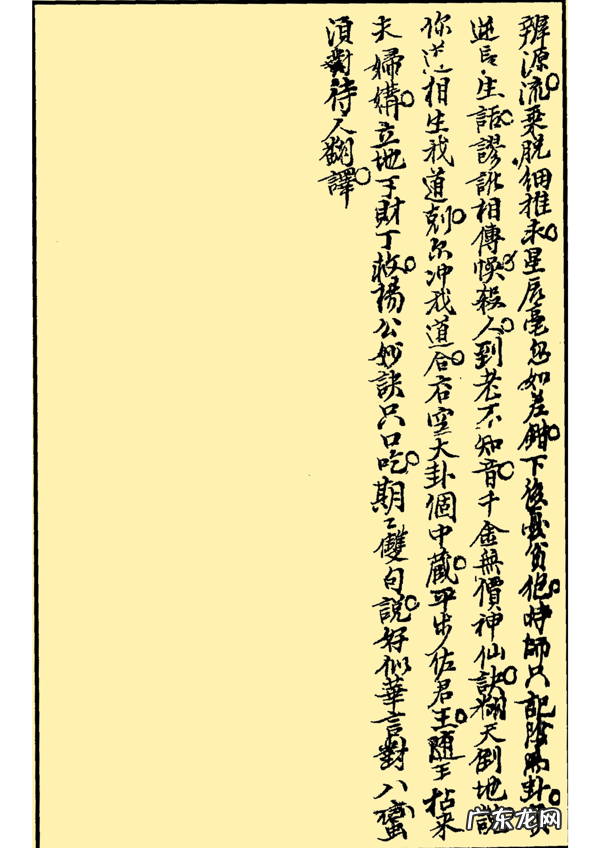 辨源流乘脫細推求星辰毫忽如差錯下後憂貧他時師只記陰陽卦
生話謬訛相傳悞殺人到老不知音千金無價神仙訣翻天倒地說
你道相生我道剋尔冲我道合玄空大卦個中藏平步佐君王隨手拈來
夫婦媾立地丁財丁救楊公妙訣只口吃期〻雙句說好似華言對八蠻
須對待人翻譯
广东龙网